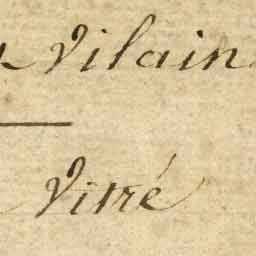 Vilain
Vitré